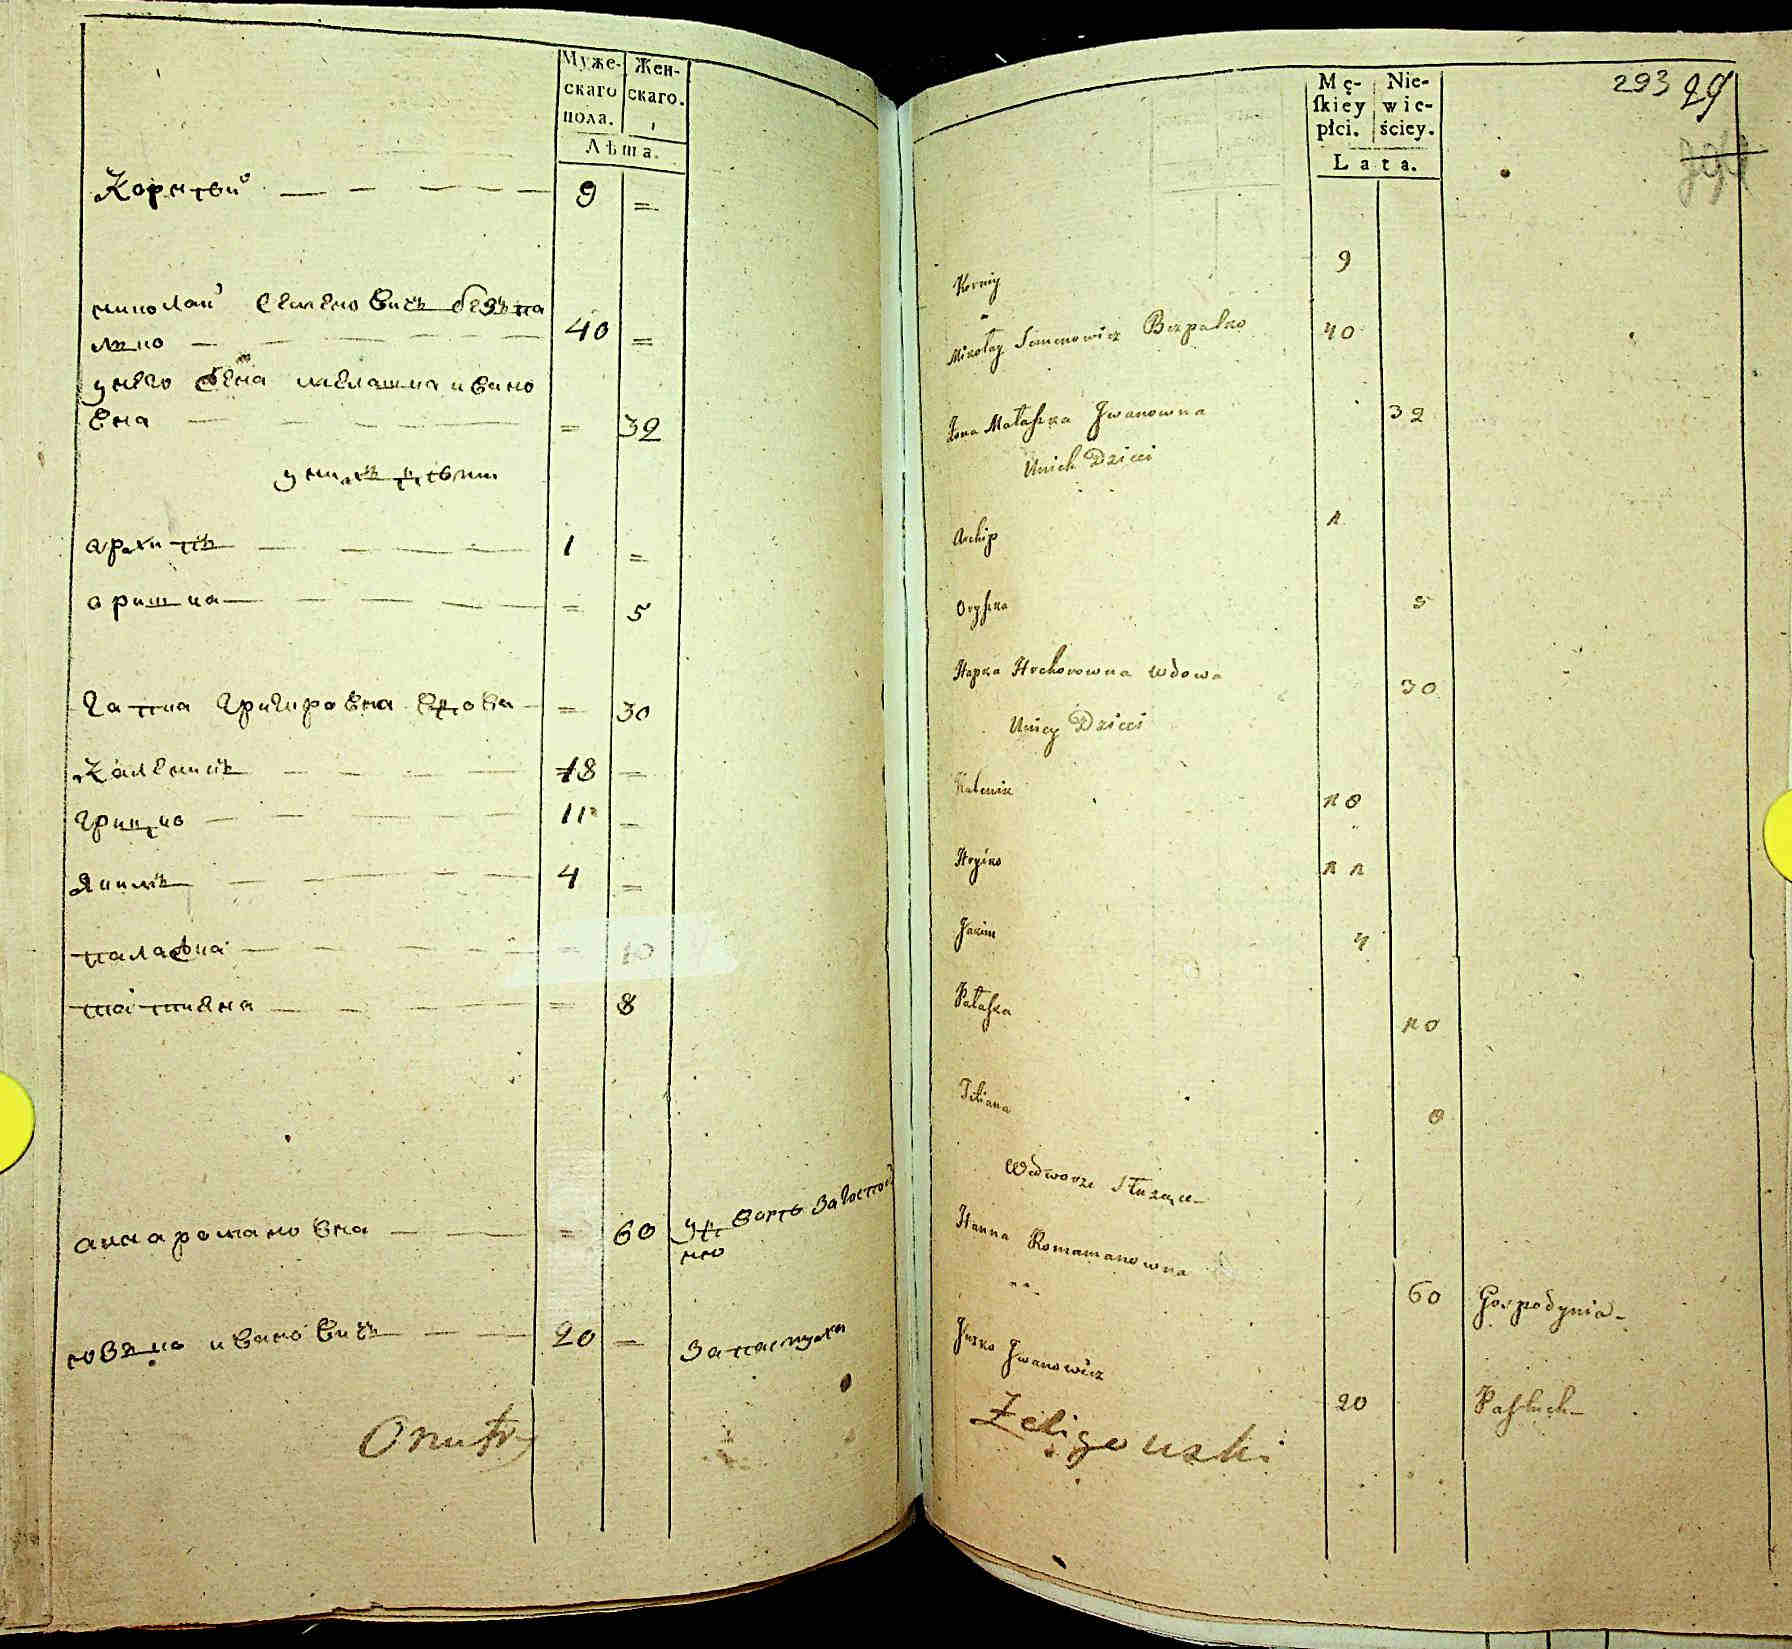 Муже-
скаго
пола.
Жен-
скаго.
Лѣта.
Корнѣй 9 =
николай семеновичъ безпа
лко 40 =
у него жена мелашка ивано
вна = 32
у нихъ дѣти
архипъ 1 =
оришка = 5
гапка григоровна вдова = 30
Каленикъ 18 =
грицко 11 =
якимъ 4 =
палажка = 10
татияна = 8
анна романовна = 60 у дворѣ за господи
ню
юзько ивановичъ 20 = за пастуха
Mę-
ſkiey
płci.
Nie-
wie-
ściey.
Lata.
293 29
Korniy 9
Mikołay Semenowicz Bezpalko 40
Żona Małaſzka Jwanowna 32
Unich Dzieci
Archip 1
Oryſzka 5
Hapka Hrehorowna wdowa 30
Uniey Dzieci
Kalenik 18
Hryćko 11
Jakim 4
Pałaſzka 10
Titiana 8
Wedworze Służące
Hanna Romamanowna 60 Gospodynia
Juzko Jwanowicz 20 Paſtuch
Żeligowski